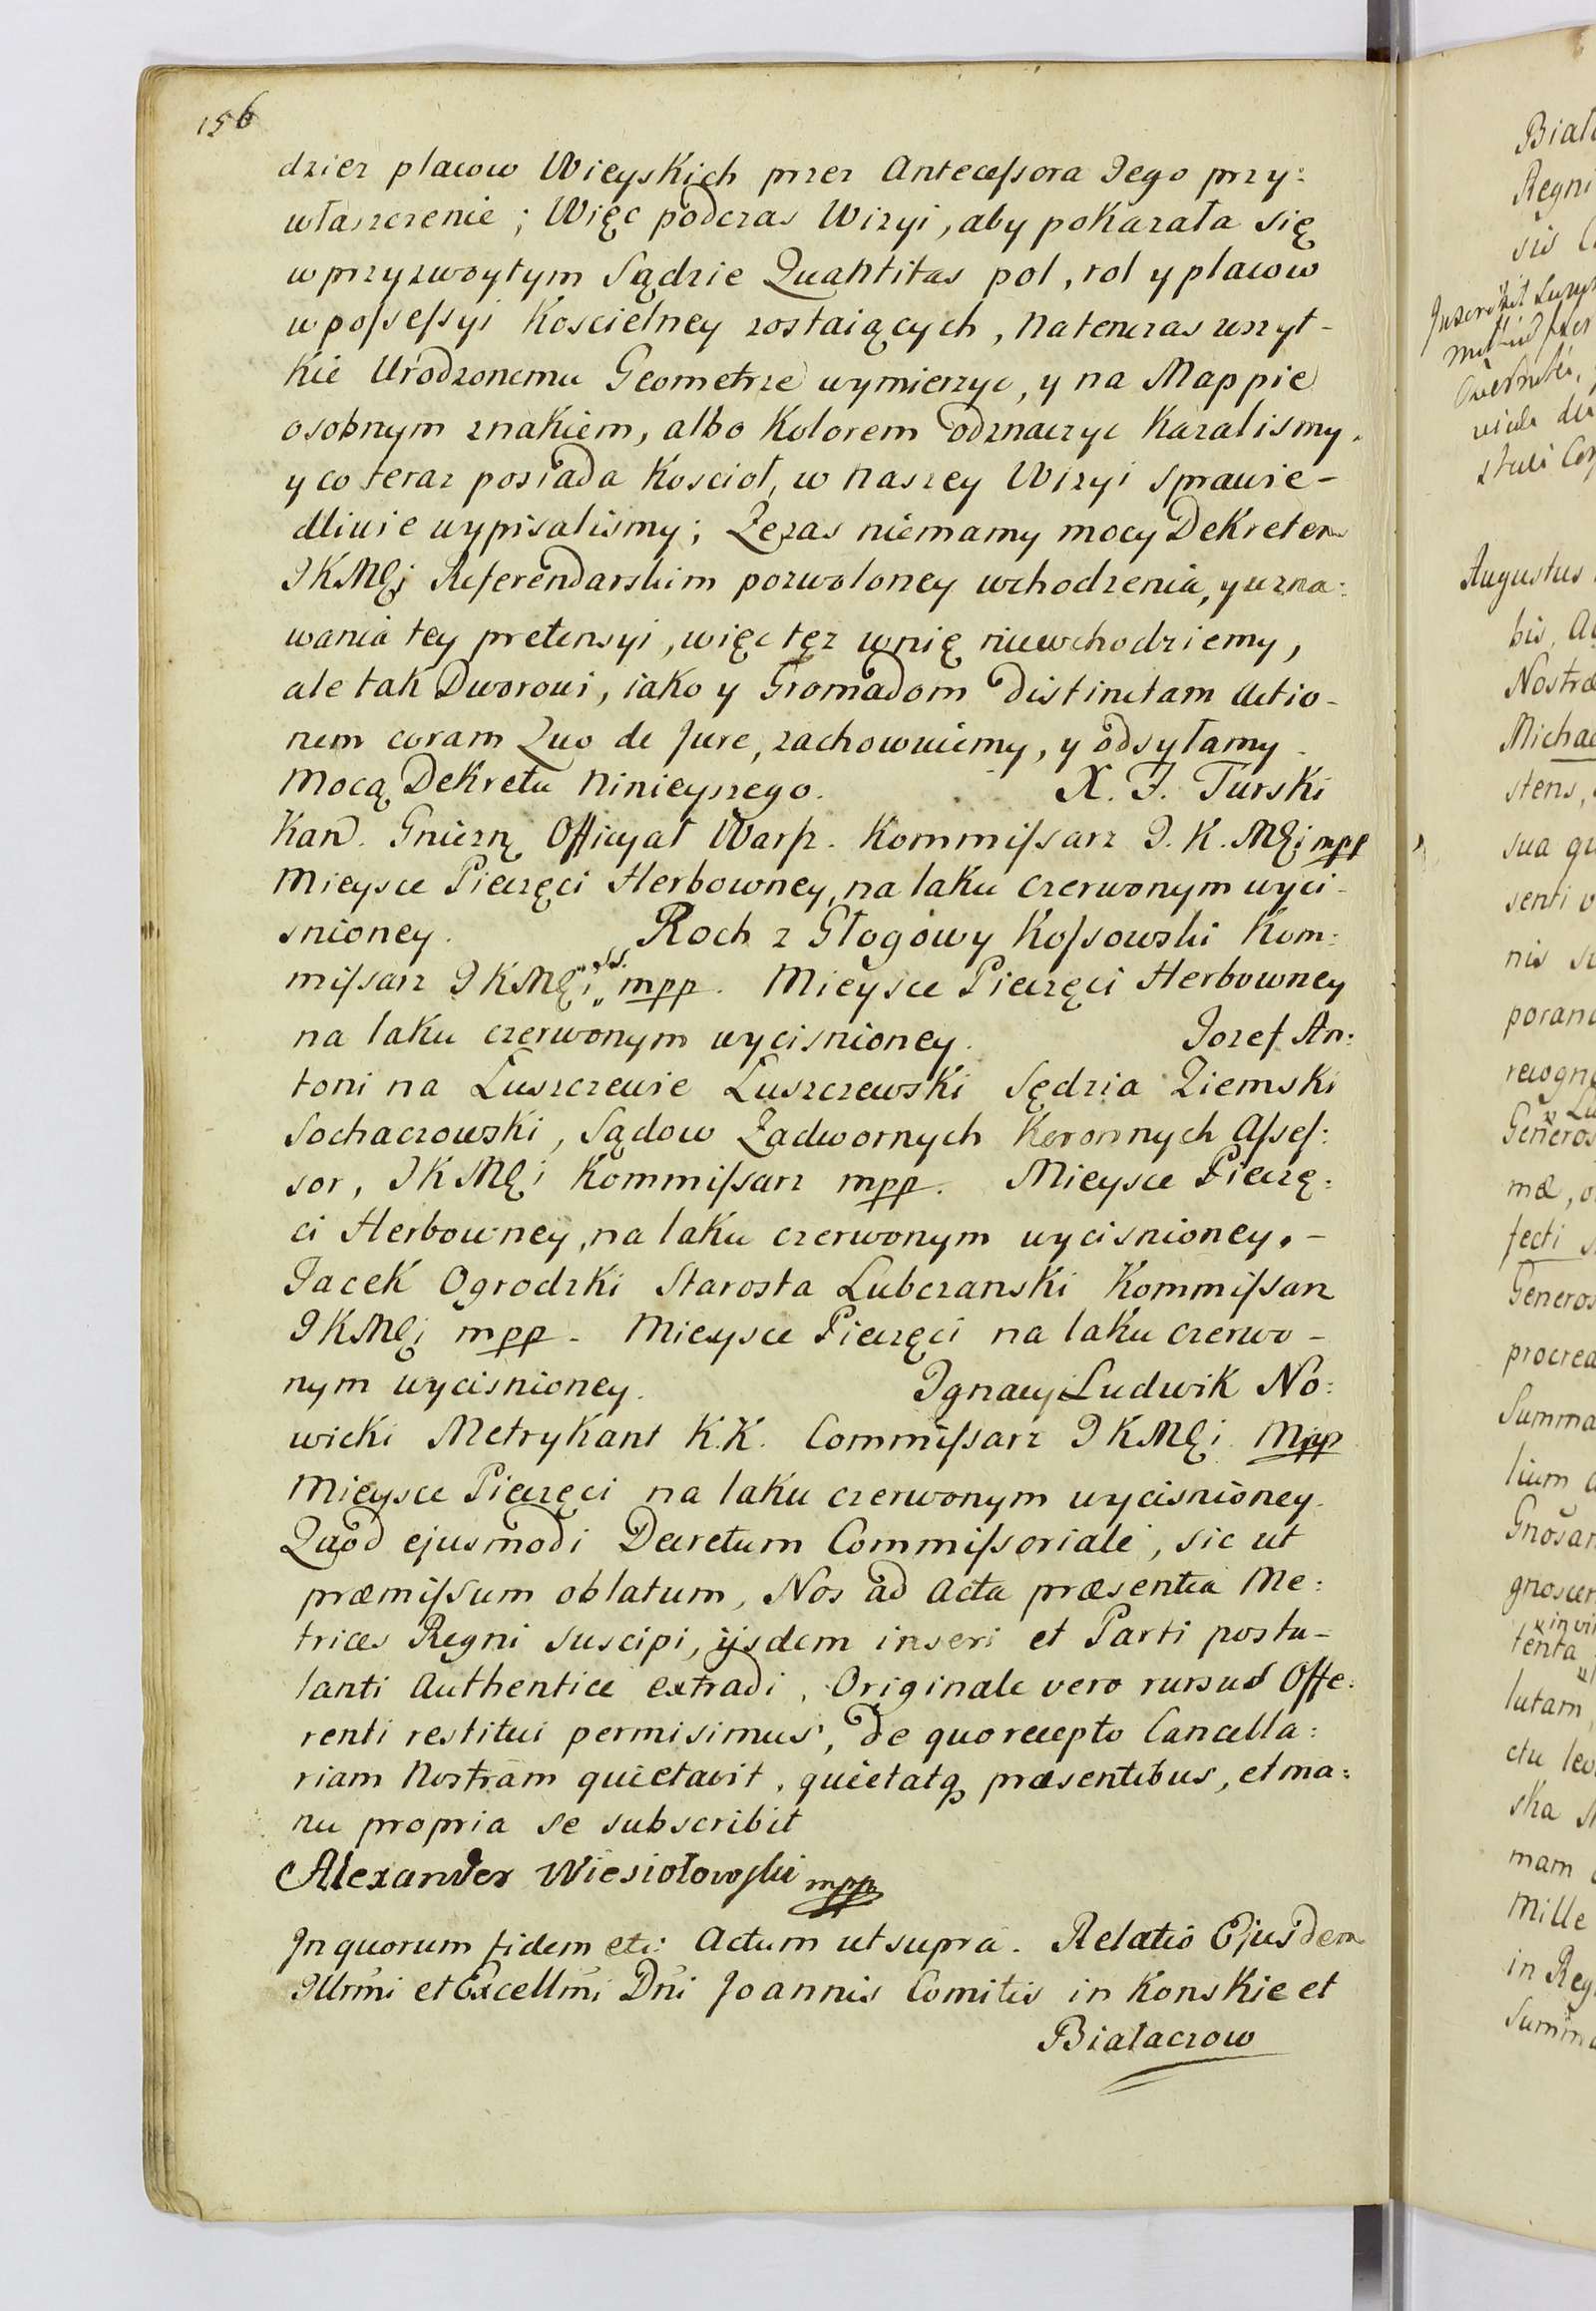 156
dziez placow Wieyskich przez Antecessora Jego przy:
właszczenie; Więc podczas Wizyi, aby pokazała się
w przyzwoytym Sądzie Quantitas pol, rol y placow
w possessyi Koscielney zostaiących, natenczas wszyt-
kie Urodzonemu Geometrze wymierzyc, y na Mappie
osobnym znakiem, albo Kolorem odznaczyc kazalismy,
y co teraz posiada Koscioł, w naszey Wizyi sprawie-
dliwie wypisalismy; Zezas niemamy mocy Dekretem
JKMCi Referendarskim pozwoloney wchodzenia, y uzna:
wania tey pretensyi, więc tęz wnię niewchodziemy,
ale tak Dworowi, iako y Gromadom distinctam actio-
nem coram Quo de Jure, zachowuiemy, y odsyłamy
mocą Dekretu ninieyszego. X. F. Turski
Kan. Gniezn Officyał Warsz. Kommissarz J. K. MCi mpp
Mieysce Pieczęci Herbowney, na laku czerwonym wyci-
snioney. Roch z Głogowy Kossowski Kom:
missarz JKMCi ss. mpp. Mieysce Pieczęci Herbowney
na laku czerwonym wycisnioney. Jozef An:
toni na Luszczewie Luszczewski Sędzia Ziemski
Sochaczowski, Sądow Zadwornych Koronnych Asses:
sor, JKMCi Kommissarz mpp. Mieysce Pieczę:
ci Herbowney, na laku czerwonym wycisnioney. -
Jacek Ogrodzki Starosta Lubczanski Kommissarz
JKMCi mpp - Mieysce Pieczęci na laku czerwo-
nym wycisnioney. Ignacy Ludwik No:
wicki Metrykant K.K. Commissarz JKMCi Mpp
Mieysce Pieczęci na laku czerwonym wycisnioney.
Quod ejusmodi Decretum Commissoriale, sic ut
præmissum oblatum, Nos ad Acta præsentia Me:
trices Regni suscipi, ijsdem inseri et Parti postu-
lanti Authentice extradi, Originale vero rursus Offe:
renti restitui permisimus, de quo recepto Cancella:
riam Nostram quietavit, quietatq præsentibus, et ma:
nu propria se subscribit
Alexander Wiesiołowski mpp
In quorum fidem etc: Actum ut supra. Relatio Ejusdem
Illrmi et Excellmi Dni Joannis Comitis in Konskie et
Białaczow
Biała
Regni
sis
Augustus
bis,
Nostræ
Michae
stens,
sua qu
senti
nis
porand
recogn
Generos
mæ,
fecti
Generos
procrea
Summa
lium
Gnosar
gnoscer
tenta
lutam
ctu
ska
mam
Mille
in Reg
Summa